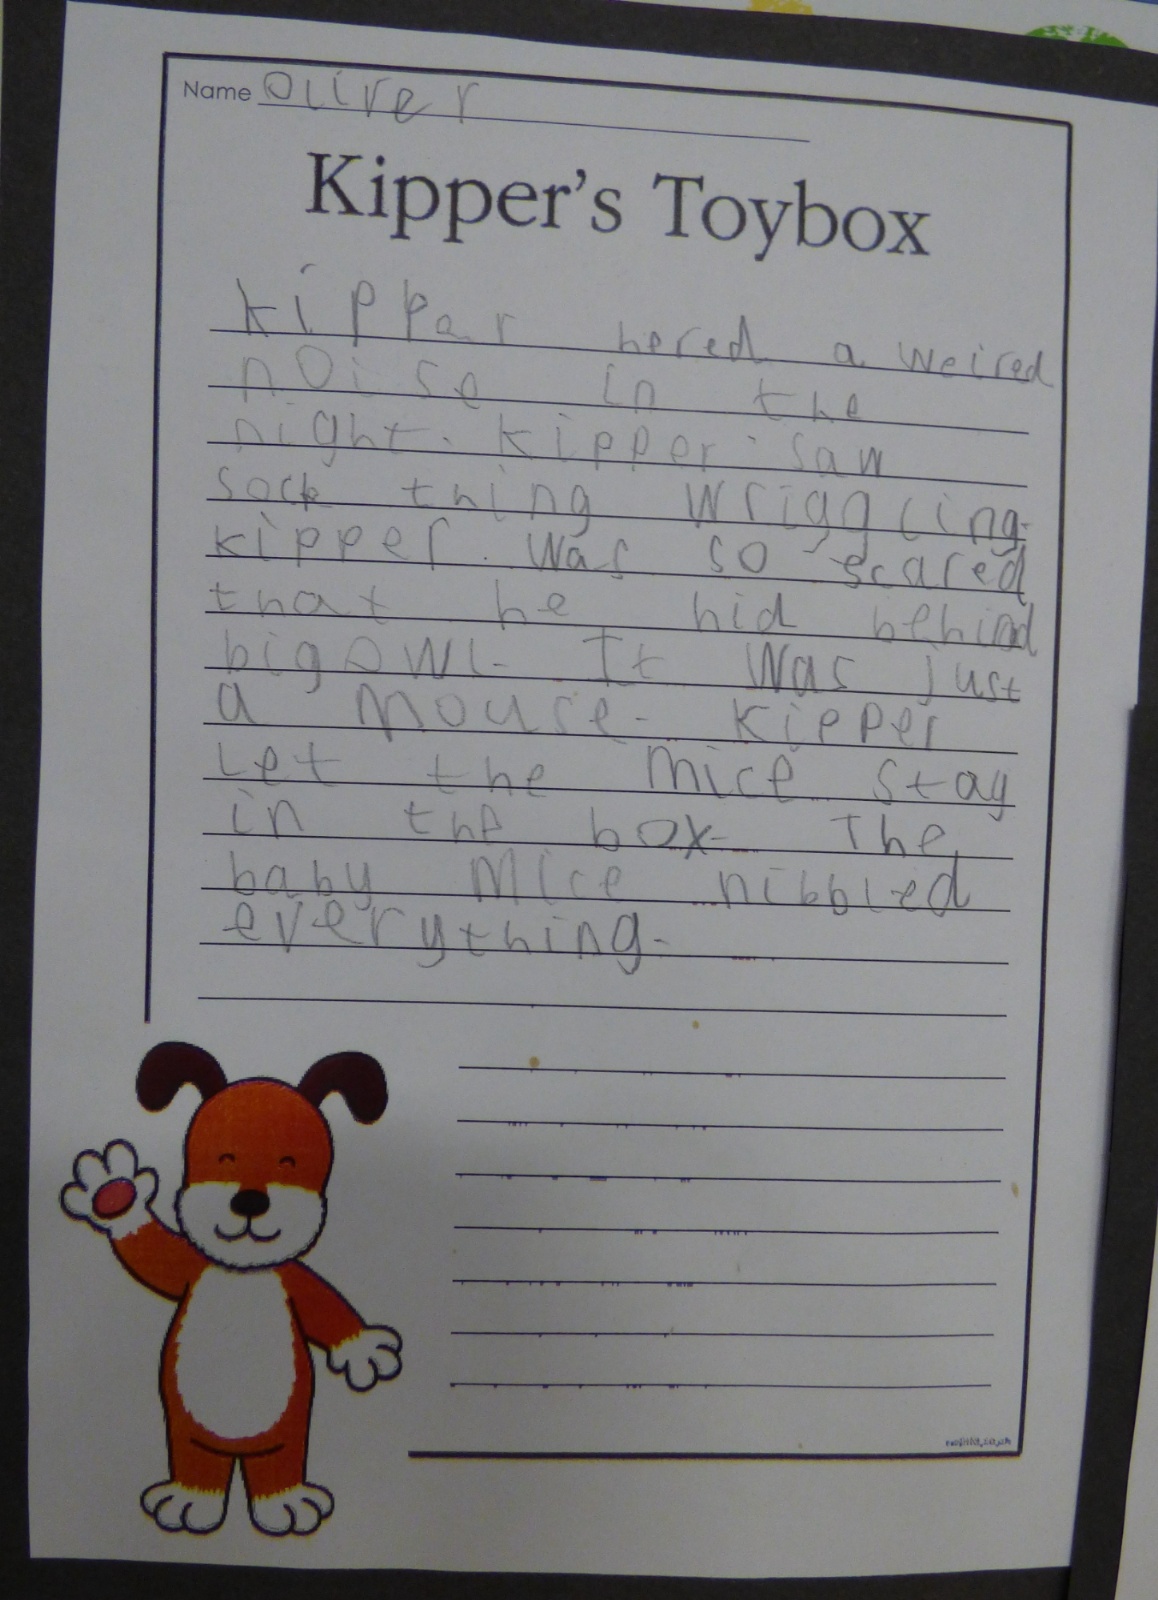 Name Oliver
Kipper's Toybox
kipper hered a weired
noise in the
night. Kipper saw
sock thing wriggling.
kipper. was so scared
that he hid behind
big owl. It was just
a mouse. kipper
let the mice stay
in the box. The
baby mice nibbled
everything.